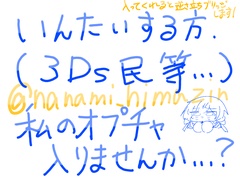 入ってくれると逆立ちブリッジ
します!
いんたいする方.
(3Ds民等...)
@nanami_himazin
私のオプチャ
入りませんか...?